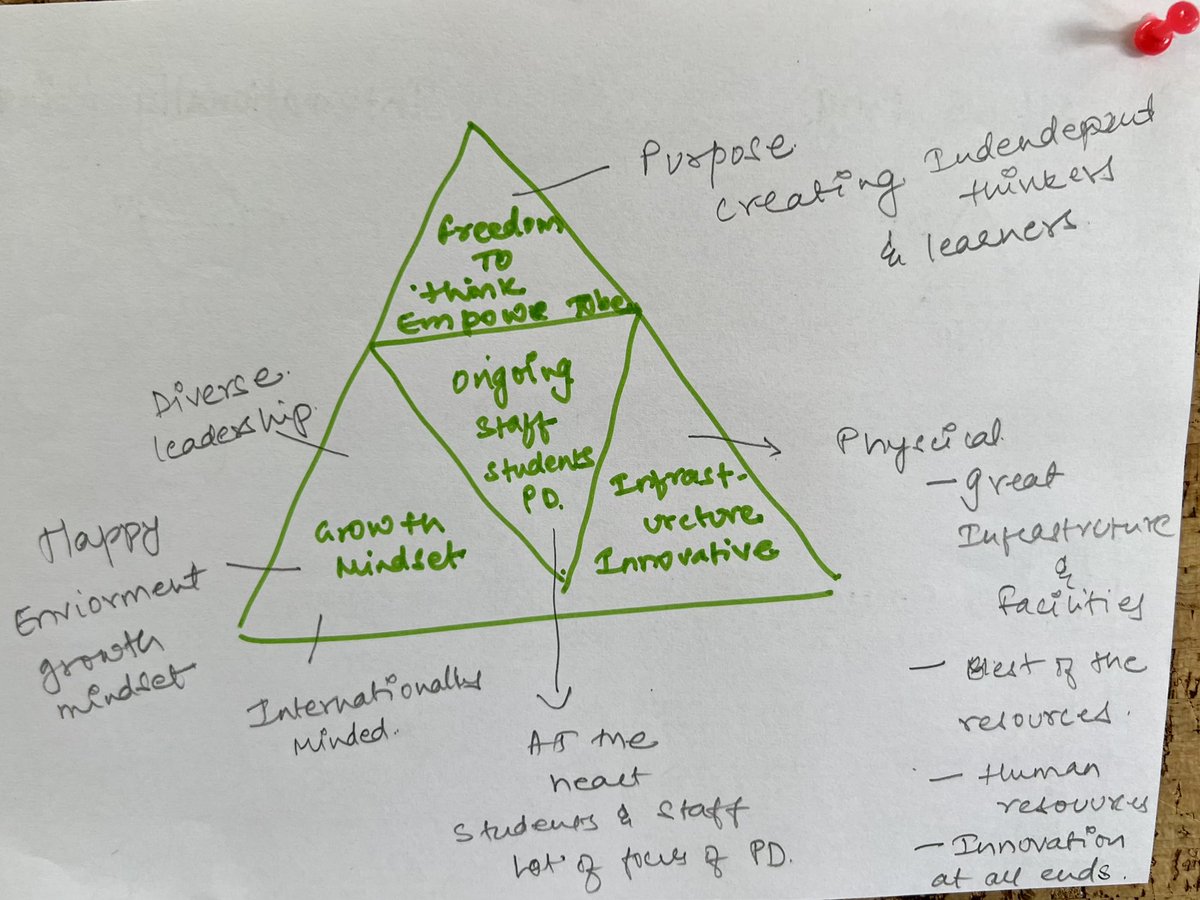 Purpose
creating Indendepent
thinkers
& learners.
freedom
TO
think
Empowre Tobe
Ongoing
staff
students
PD.
Diverse.
leadership.
Growth
Mindset
Infrast-
urcture
Innovative
Happy
Enviorment
growth
mindset
Internationally
Minded.
At the
heart
Students & staff
lot of focus of PD.
Physcical.
- great
Infrastructure
&
facilities
- Best of the
resources.
- Human
resources
- Innovation
at all ends.